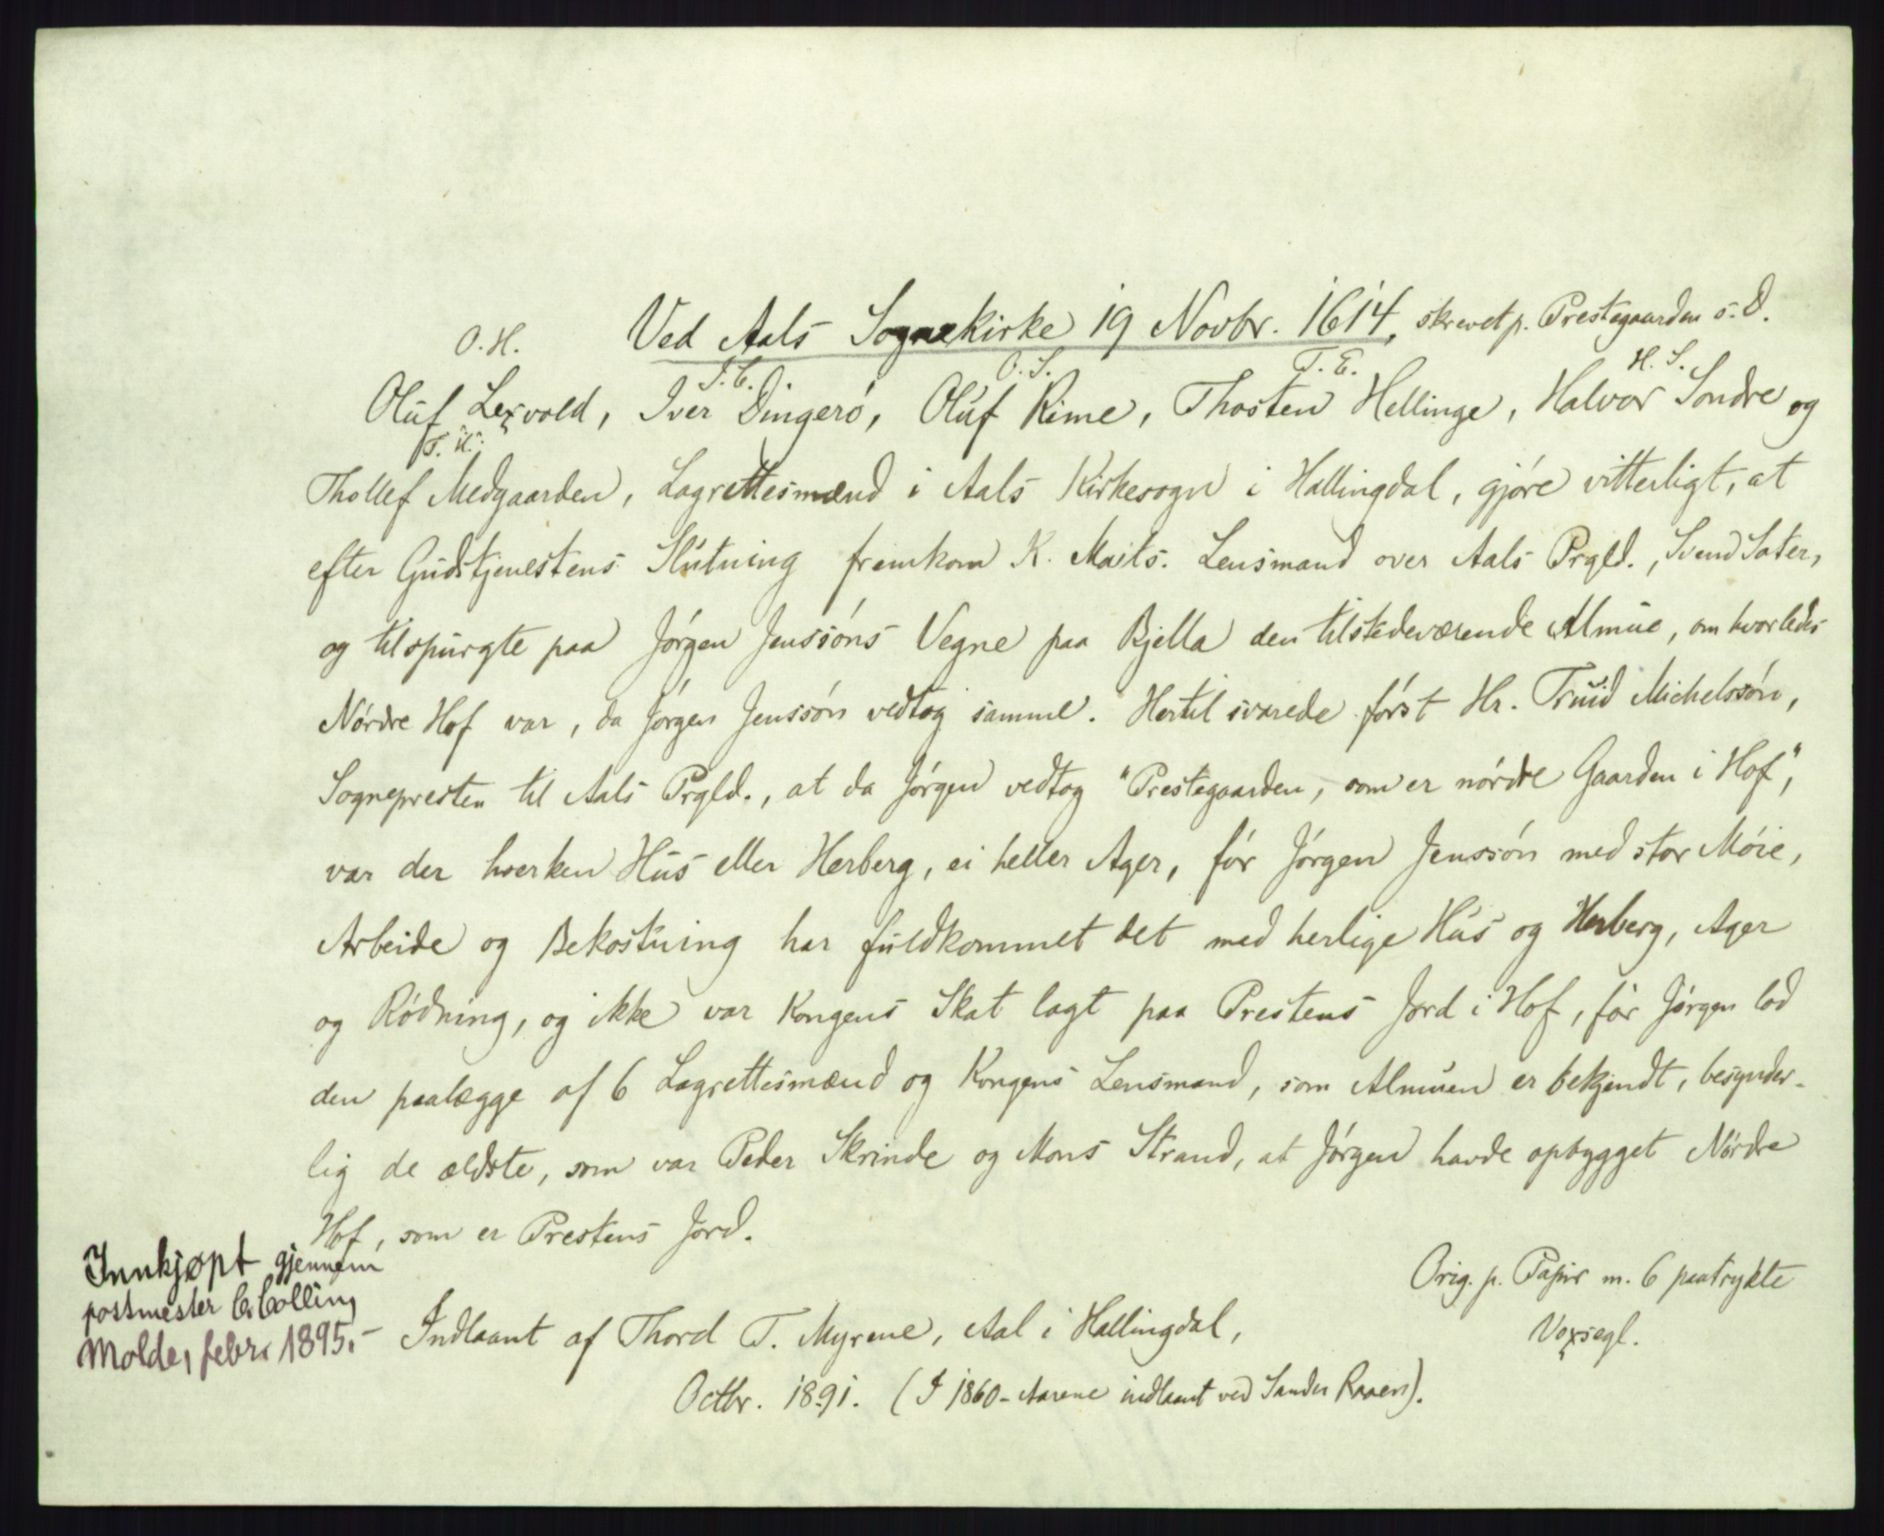 Ved Aals Sognekirke 19 Novbr. 1614, skrevet p. Prestegaarden s. D.
O. H. I. C. O. S. T. E. H. S.
Oluf Lexvold, Iver Dingerö, Oluf Rime, Thosten Hellinge, Halvor Sondre og
T. H.
Thollef Medgaarden, Lagrettesmænd i Aals Kirkesogn i Hallingdal, gjöre vitterligt, at
efter Gudstjenestens Slutning fremkom K. Maits. Lensmand over Aals Prgld., Svend Sater,
og tilspurgte paa Jörgen Jenssöns Vegne paa Bjella den tilstedeværende Almue, om hvorledes
Nördre Hof var, da Jörgen Jenssön vedtog samme. Hertil svarede först Hr. Truid Michelssön,
Sognepresten til Aals Prgld., at da Jörgen vedtog "Prestegaarden, som er nördre Gaarden i Hof",
var der hverken Hus eller Herberg, ei heller Ager, för Jörgen Jenssön med stor Möie,
Arbeide og Bekostning har fuldkommet det med herlige Hus og Herberg, Ager
og Rödning, og ikke var Kongens Skat lagt paa Prestens Jord i Hof, för Jörgen lod
den paalægge af 6 Lagrettesmænd og Kongens Lensmand, som Almuen er bekjendt, besynder-
lig de ældste, som var Peder Skrinde og Mons Strand, at Jörgen havde opbygget Nördre
Hof, som er Prestens Jord.
Orig. p. Papir m. 6 paatrykte
Voxsegl.
Innkjøpt gjennem
postmester C. Colling
Molde, febr. 1895.-
Indlaant af Thord T. Myrene, Aal i Hallingdal,
Octbr. 1891. (I 1860-Aarene indlaant ved Sander Raaen).